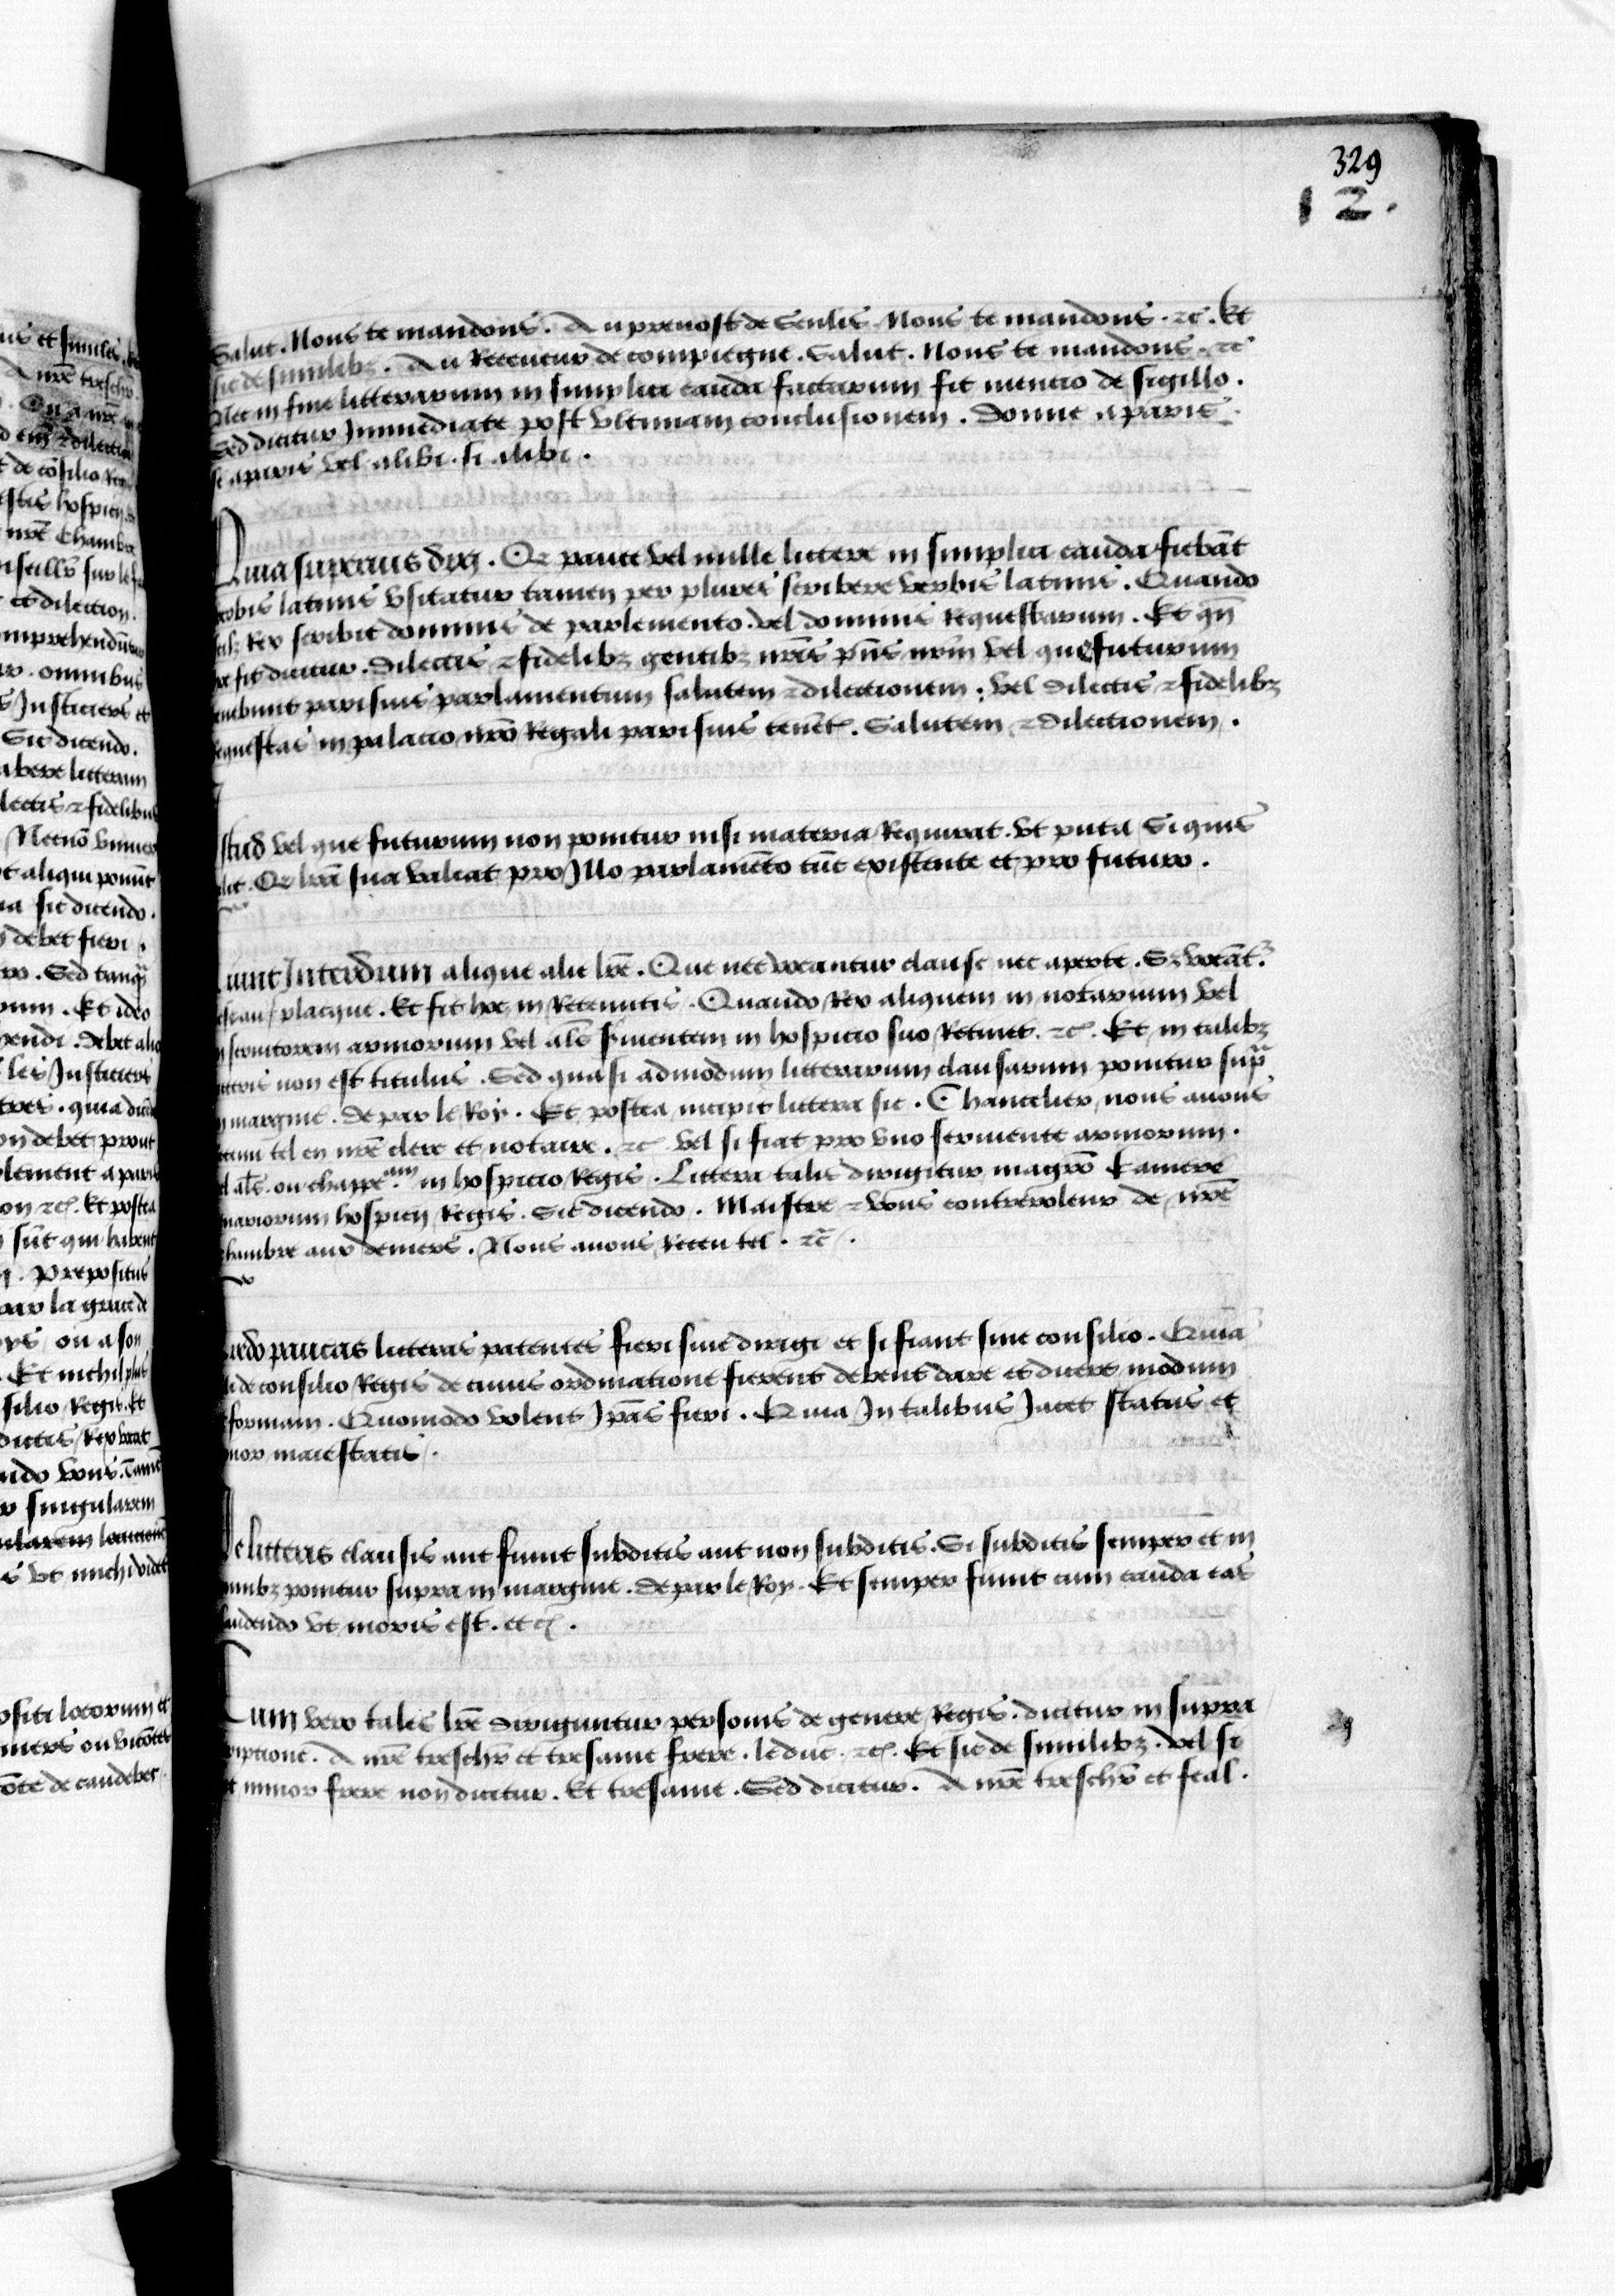 329
12.
Salut. Nous te mandons. Au prevost de Senlis. Nous te mandons. ⁊c. Et
sic de similibꝫ. Au Receveur de compiegne. Salut. Nous te mandons. ⁊c
Nec in fine litterarum in simplici cauda factarum fit mencio de sigillo.
Sed dicitur Immediate post ultimam conclusionem. Donne a paris.
si a paris vel alibi. si alibi.
Quia superius dixi. Qᷓ pauce vel nulle littere in simplici cauda fiebāt
verbis latinis usitatur tamen per plures scribere verbis latinis. Quando
Rex scribit dominis de parlemento. vel dominis Requestarum. Et qn̄
fit dicitur. Dilectis ⁊ fidelibꝫ gentibꝫ nr̄is pn̄s nr̄m vel que futurum
tenebunt parisius parlamentum salutem ⁊ dilectionem. vel Dilectis ⁊ fidelibꝫ
Requestas in palacio nr̄o Regali parisius tenent. Salutem ⁊ Dilectionem.
Istud vel que futurum non ponitur nisi materia Requirat. ut puta Si quis
lrā sua valeat pro Illo parlamēto tūc existente et pro futuro.
Sunt Interdum alique alie lr̄e. Que nec vocantur clause nec aperte. Sꝫ vocāt.
placque. Et fit hoc in Retenutis. Quando Rex aliquem in notarium vel
servitorem armorum vel al̄s servientem in hospicio suo Retinet. ⁊c. Et in talibꝫ
litteris non est titulus. Sed quasi admodum litterarum clausarum ponitur sup̄
in margine. De par le Roy. Et postea incipit littera sic. Chancelier, nous avons
tel en nr̄e clerc et notaire. ⁊c vel si fiat pro uno serviente armorum.
vel al̄s. ou chappe.am in hospicio Regis. Littera talis dirigitur magr̄o Camere
denariorum hospicij Regis. Sic dicendo. Maistre ⁊ vous contreroleur de nr̄e
chambre aux deniers. Nous avons Retenu tel. ⁊c.
Credo paucas litteras patentes fieri sive dirigi et si fiant sine consilio. Quia
illi de consilio Regis de cuius ordinatione fierent debent dare et dicere modum
formam. Quomodo volent Ip̄as fieri. Quia In talibus Jacet status et
honor maiestatis.
De litteris clausis aut fiunt subditis aut non subditis. Si subditis semper et in
omnibꝫ ponitur supra in margine. De par le Roy. Et semper fiunt cum cauda eas
claudendo ut moris est. etc.
Cum vero tales lr̄e diriguntur personis de genere Regis. dicitur in supra
scriptione. A nr̄e treschr̄ et tresame frere. le duc. ⁊c. Et sic de similibꝫ. vel si
sit minor frere non dicitur. Et tresame. Sed dicitur. A nr̄e treschr̄ et feal.